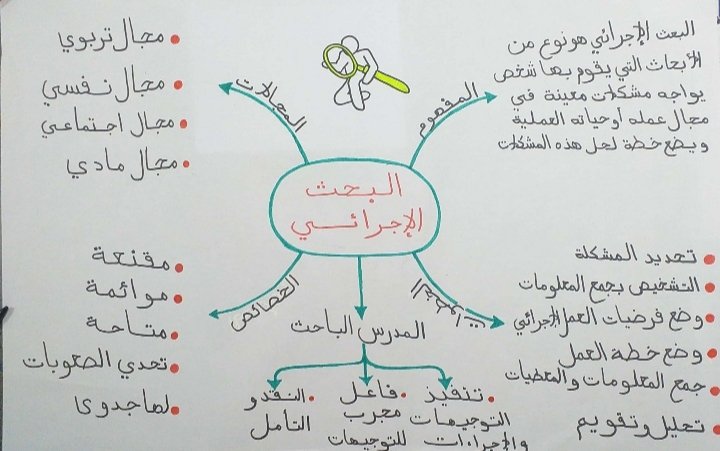 البحث
الإجرائي
المفهوم
البحث الإجرائي هو نوع من
الأبحاث التي يقوم بها شخص
يواجه مشكلات معينة في
مجال عمله أو حياته العملية
ويضع خطة لحل هذه المشكلات
المجالات
مجال تربوي
مجال نفسي
مجال اجتماعي
مجال مادي
الخطوات
تحديد المشكلة
التشخيص بجمع المعلومات
وضع فرضيات العمل الإجرائي
وضع خطة العمل
جمع المعلومات والمعطيات
تحليل وتقويم
الخصائص
مقنعة
موائمة
متاحة
تحدي الصعوبات
لها جدوى
المدرس الباحث
تنفيذ
التوجيهات
والإجراءات
فاعل
مجرب
للتوجيهات
النقد و
التأمل